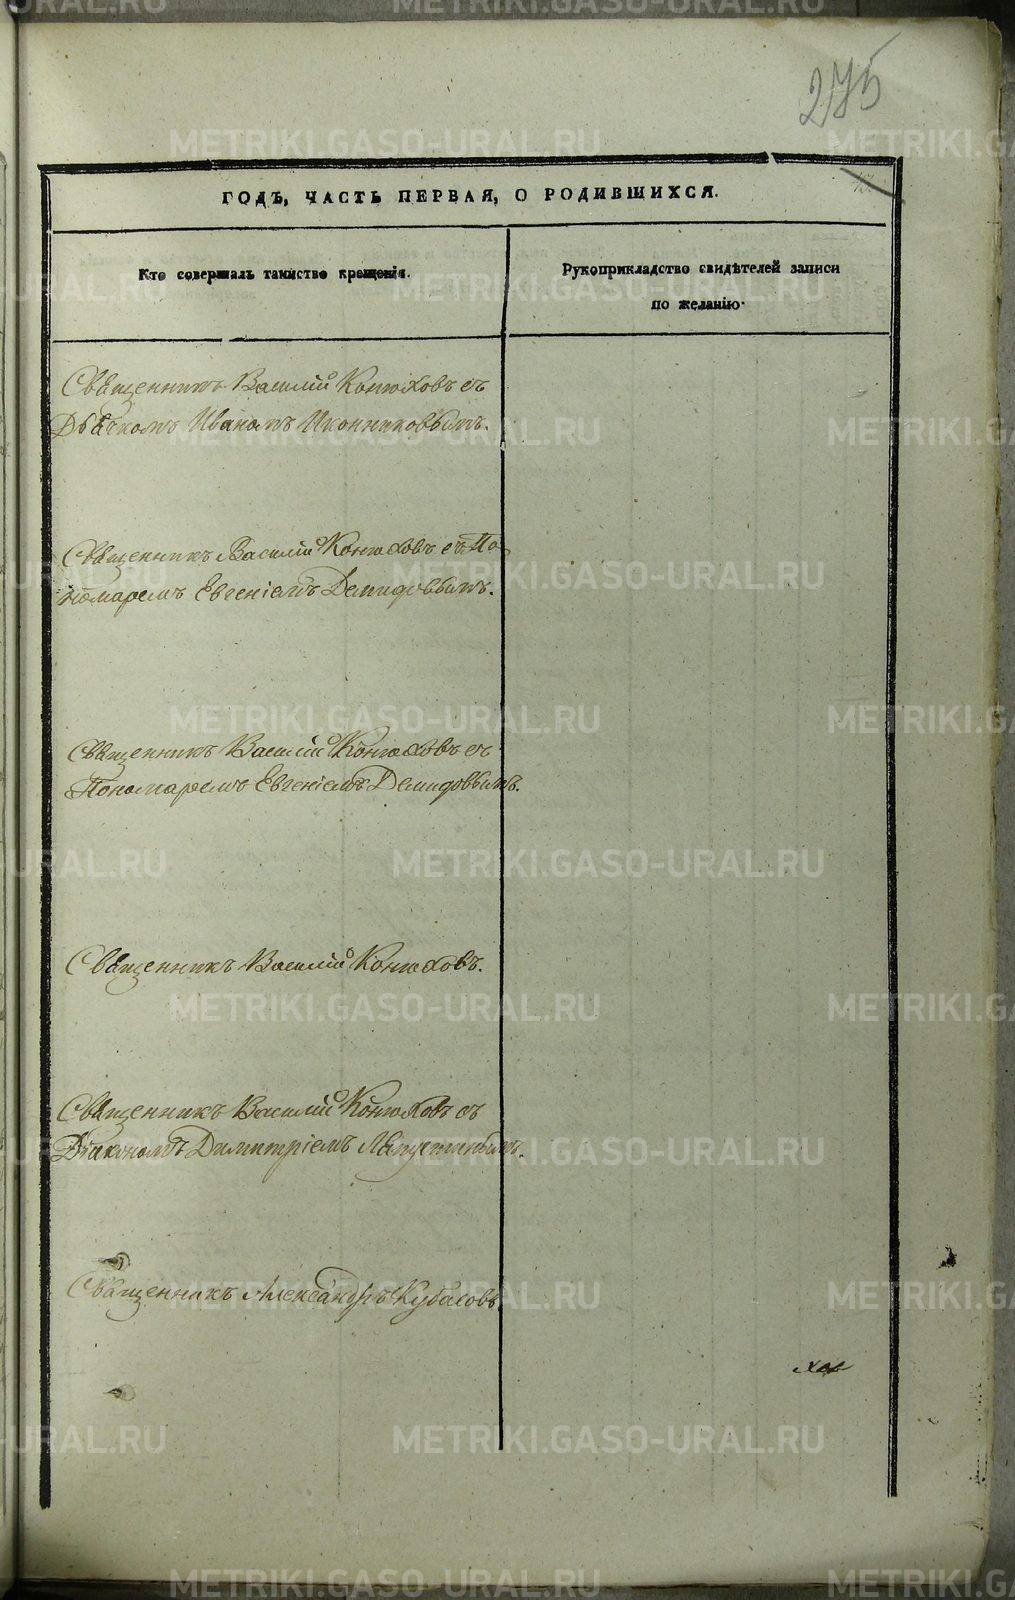 275
ГОДЪ, ЧАСТЬ ПЕРВАЯ, О РОДИВШИХСЯ.
Кто совершалъ таинство крещенія.
Рукоприкладство свидѣтелей записи
по желанію.
Священникъ Василій Конюховъ съ
Дьячкомъ Иваномъ Иконниковымъ.
Священникъ Василій Конюховъ съ По-
номаремъ Евгеніемъ Демидовымъ.
Священникъ Василій Конюховъ съ
Пономаремъ Евгеніемъ Демидовымъ.
Священникъ Василій Конюховъ.
Священникъ Василій Конюховъ съ
Діакономъ Димитріемъ Лапустинымъ.
Священникъ Александръ Кубасовъ
METRIKI.GASO-URAL.RU